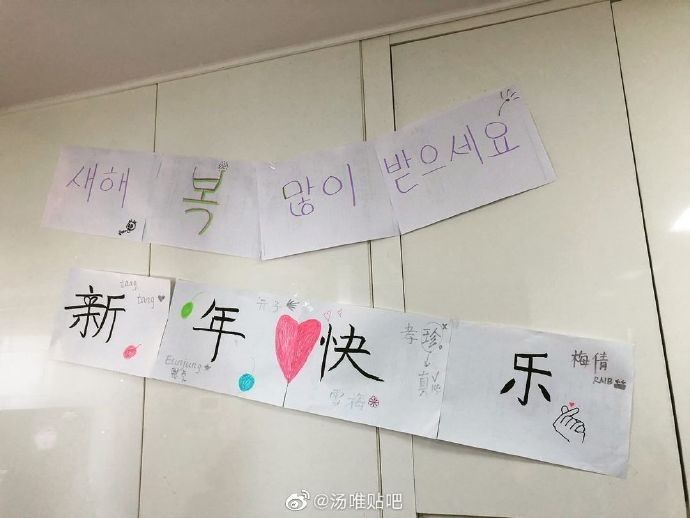 새해 복 많이 받으세요
新年快乐
tang
tang
Eunjung
元子
雪梅
孝珍
真
梅倩
RAIB
@汤唯贴吧